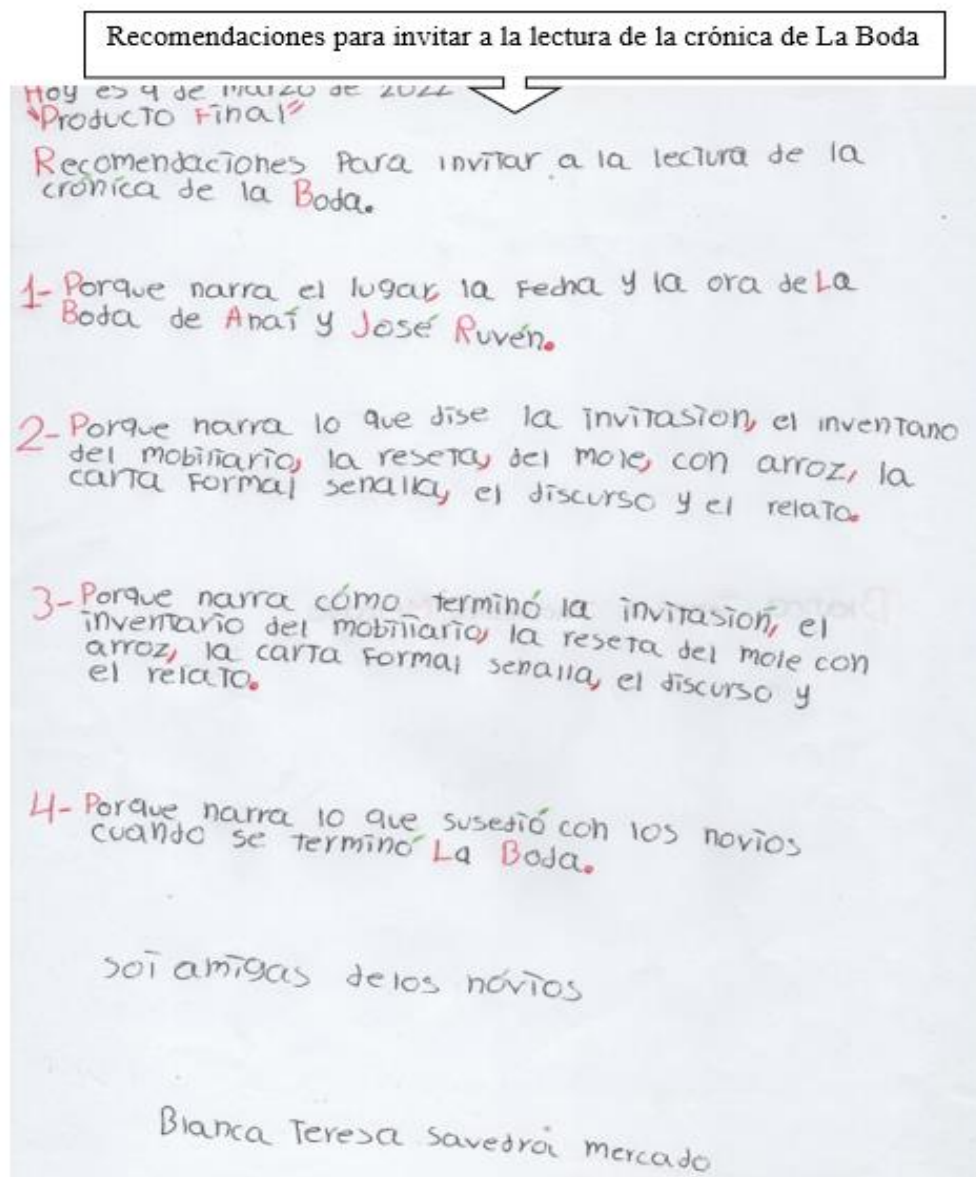 Recomendaciones para invitar a la lectura de la crónica de La Boda
Hoy es 9 de marzo de 2022
"Producto Final"
Recomendaciones Para invitar a la lectura de la
crónica de la Boda.
1- Porque narra el lugar, la Fecha y la ora de La
Boda de Anaí y José Ruvén.
2- Porque narra lo que dise la invitasion, el inventario
del mobiliario, la reseta, del mole, con arroz, la
carta Formal senalla, el discurso y el relato.
3- Porque narra cómo terminó la invitasión, el
inventario del mobiliario, la reseta del mole con
arroz, la carta Formal senalla, el discurso y
el relato.
4- Porque narra lo que susedió con los novios
cuando se terminó La Boda.
soi amigas de los novios
Bianca Teresa Savedra Mercado